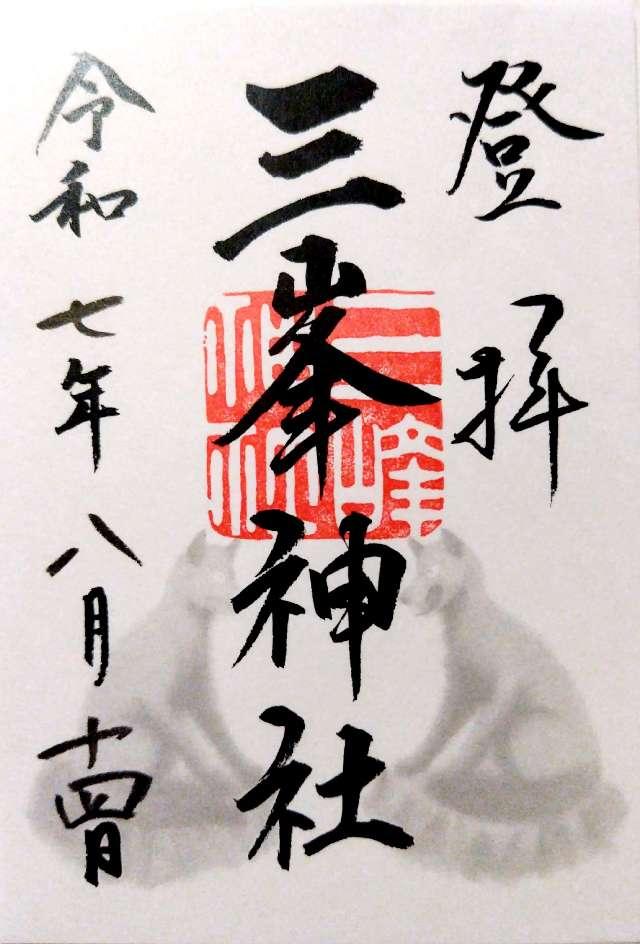 登拝
三峯神社
三峰神社
令和七年八月十四日